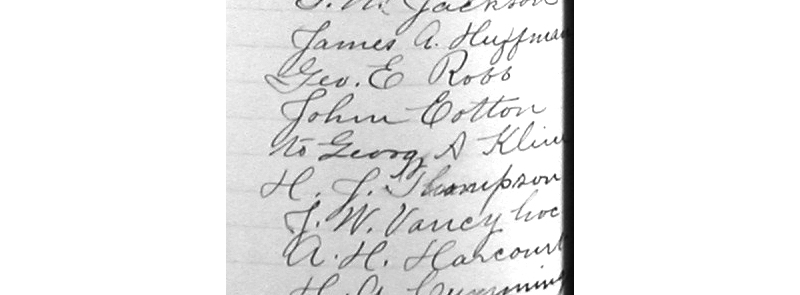 Jackson
James A. Huffman
Geo. E Robb
John Cotton
to George A Kline
H. J. Thompson
J. W. Vancy
A. H. Harcourt